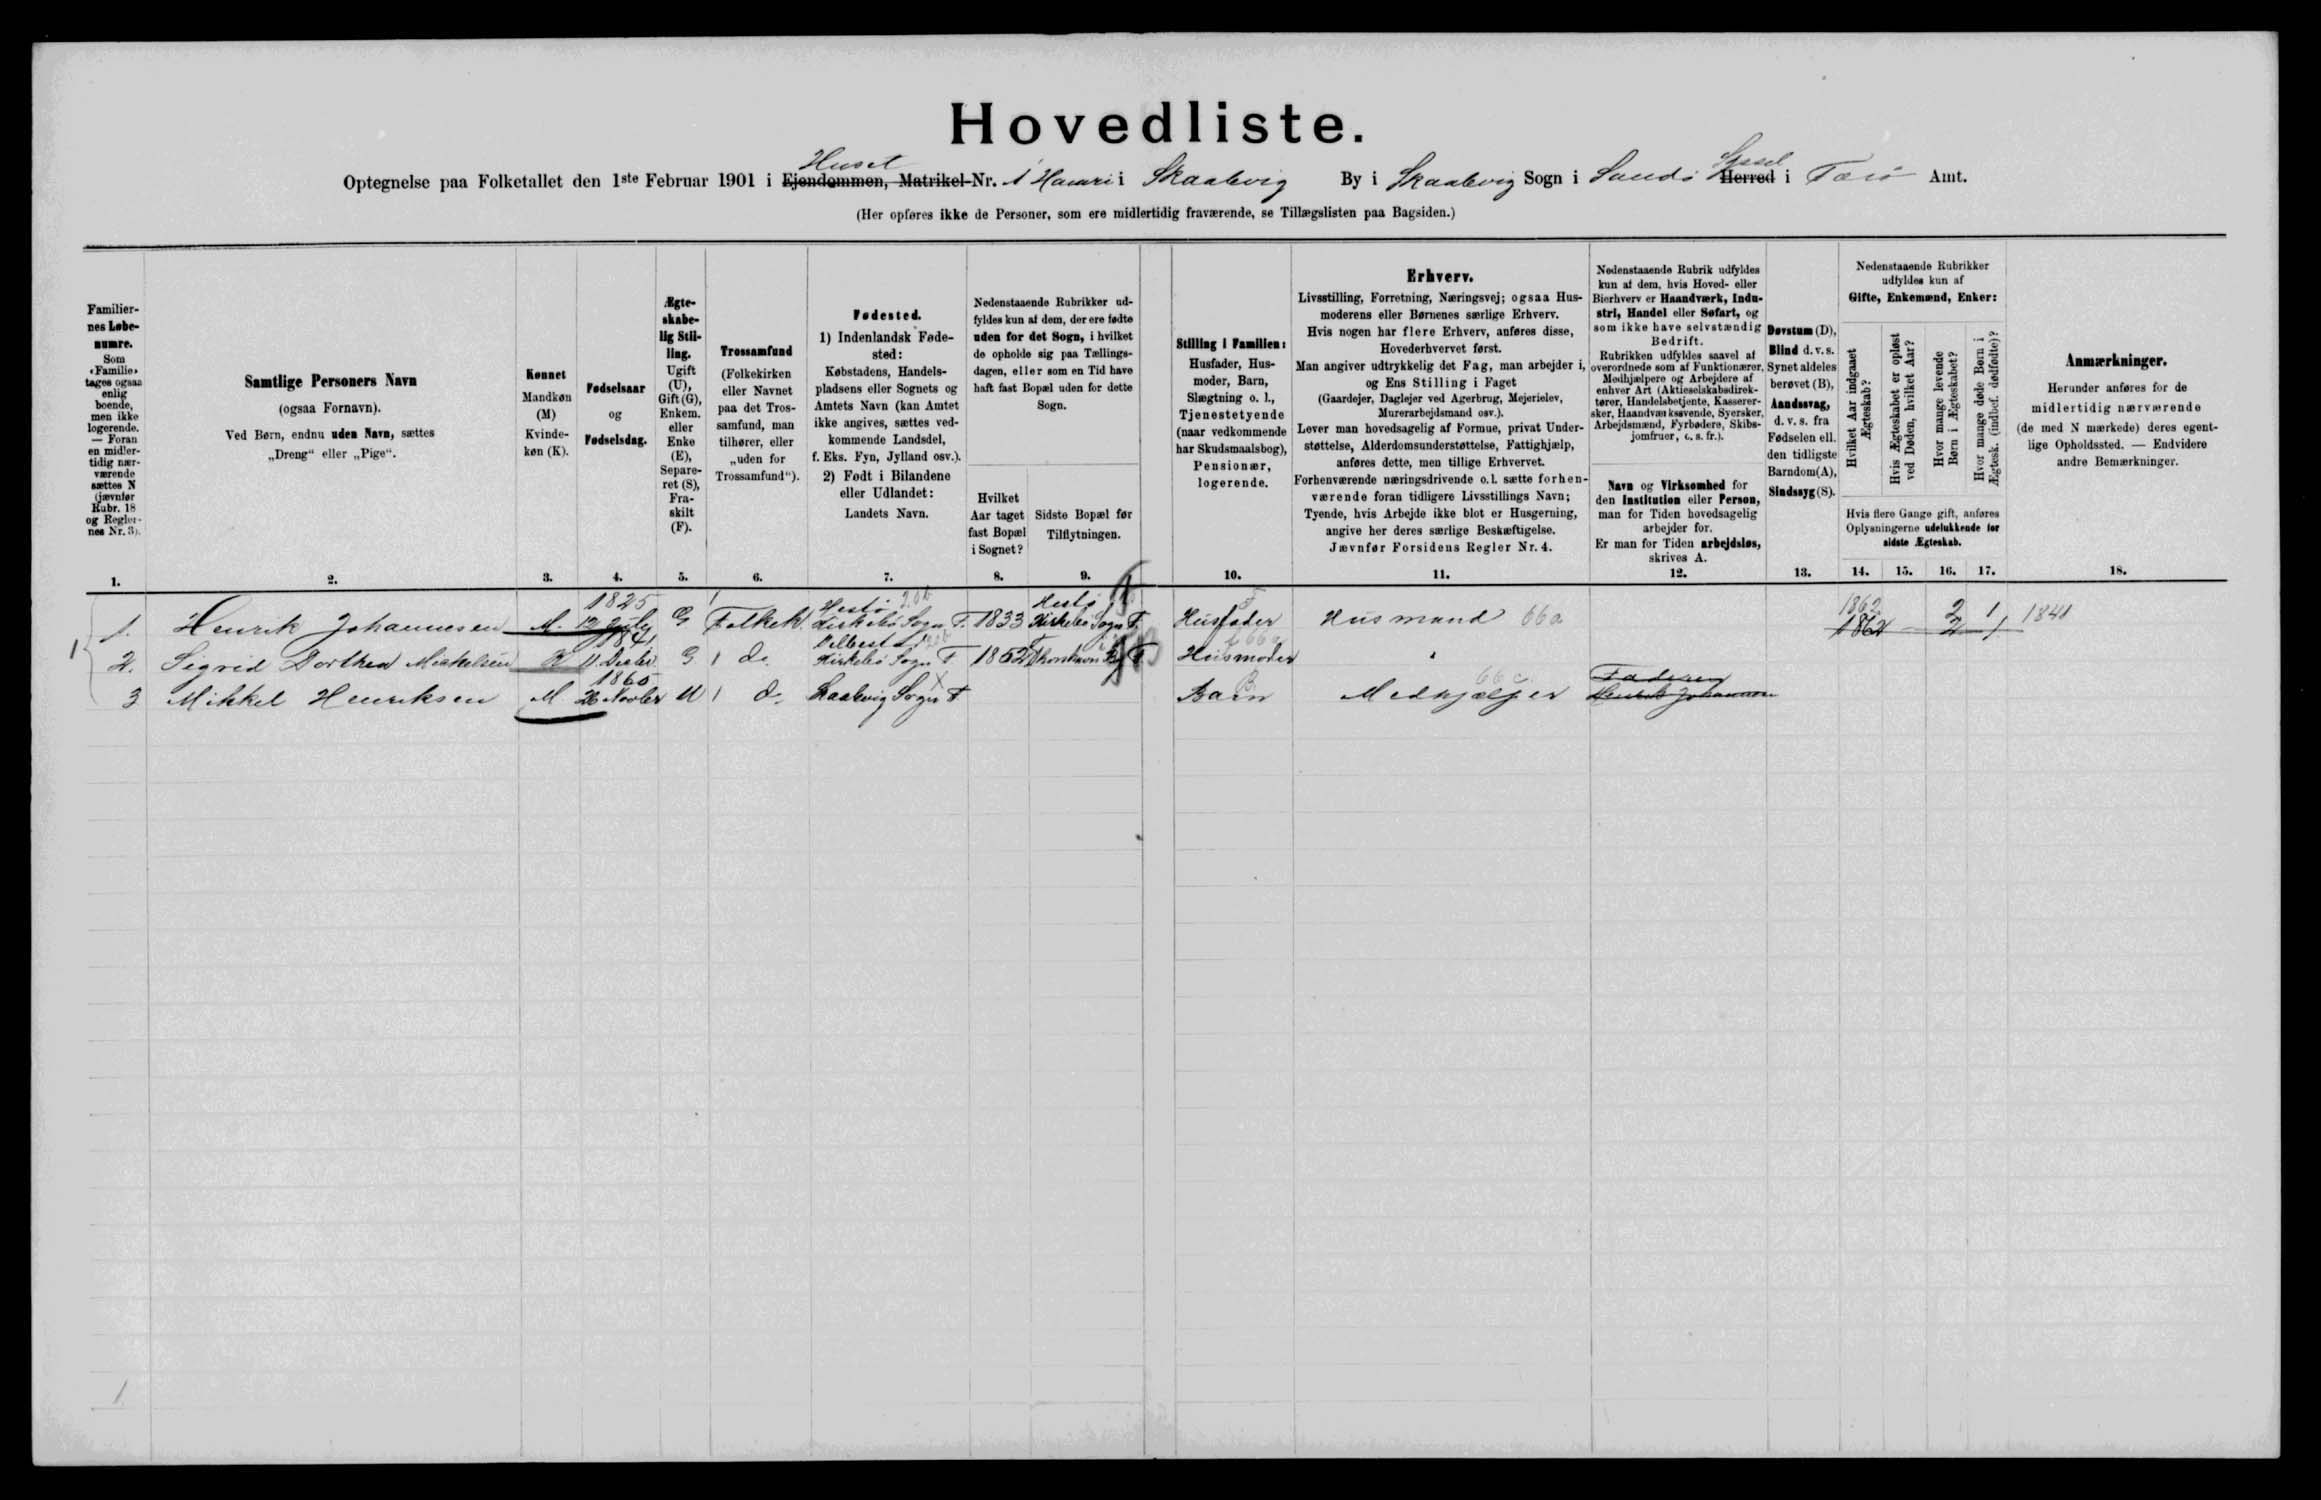 Hovedliste.
Huset Syssel
Optegnelse paa Folketallet den 1ste Februar 1901 i Ejendommen, Matrikel-Nr. Á Hamri i Skaalevig By i Skaalevig Sogn i Sandö Herred i Færö Amt.
(Her opføres ikke de Personer, som ere midlertidig fraværende, se Tillægslisten paa Bagsiden.)
Familiernes Løbenumre.
Som «Familie» tages ogsaa enlig boende, men ikke logerende. — Foran en midlertidig nærværende sættes N (jævnfør Rubr. 18 og Reglernes Nr. 3).
Samtlige Personers Navn
(ogsaa Fornavn).
Ved Børn, endnu uden Navn, sættes
„Dreng“ eller „Pige“.
Kønnet
Mandkøn
(M)
Kvindekøn (K).
Fødselsaar
og
Fødselsdag.
Ægteskabelig Stilling.
Ugift (U), Gift (G), Enkem. eller Enke (E), Separeret (S), Fraskilt (F).
Trossamfund
(Folkekirken eller Navnet paa det Trossamfund, man tilhører, eller „uden for Trossamfund“).
Fødested.
1) Indenlandsk Fødested:
Købstadens, Handelspladsens eller Sognets og Amtets Navn (kan Amtet ikke angives, sættes vedkommende Landsdel, f. Eks. Fyn, Jylland osv.).
2) Født i Bilandene eller Udlandet:
Landets Navn.
Nedenstaaende Rubrikker udfyldes kun af dem, der ere fødte uden for det Sogn, i hvilket de opholde sig paa Tællingsdagen, eller som en Tid have haft fast Bopæl uden for dette Sogn.
Hvilket Aar taget fast Bopæl i Sognet?
Sidste Bopæl før Tilflytningen.
Stilling i Familien:
Husfader, Husmoder, Barn, Slægtning o. l., Tjenestetyende (naar vedkommende har Skudsmaalsbog), Pensionær, logerende.
Erhverv.
Livsstilling, Forretning, Næringsvej; ogsaa Husmoderens eller Børnenes særlige Erhverv.
Hvis nogen har flere Erhverv, anføres disse, Hovederhvervet først.
Man angiver udtrykkelig det Fag, man arbejder i, og Ens Stilling i Faget
(Gaardejer, Daglejer ved Agerbrug, Mejerielev, Murerarbejdsmand osv.).
Lever man hovedsagelig af Formue, privat Understøttelse, Alderdomsunderstøttelse, Fattighjælp, anføres dette, men tillige Erhvervet.
Forhenværende næringsdrivende o. l. sætte forhenværende foran tidligere Livsstillings Navn; Tyende, hvis Arbejde ikke blot er Husgerning, angive her deres særlige Beskæftigelse.
Jævnfør Forsidens Regler Nr. 4.
Nedenstaaende Rubrik udfyldes kun af dem, hvis Hoved- eller Bierhverv er Haandværk, Industri, Handel eller Søfart, og som ikke have selvstændig Bedrift.
Rubrikken udfyldes saavel af overordnede som af Funktionærer, Medhjælpere og Arbejdere af enhver Art (Aktieselskabsdirektører, Handelsbetjente, Kasserersker, Haandværkssvende, Syersker, Arbejdsmænd, Fyrbødere, Skibsjomfruer, o. s. fr.).
Navn og Virksomhed for den Institution eller Person, man for Tiden hovedsagelig arbejder for.
Er man for Tiden arbejdsløs, skrives A.
Døvstum (D),
Blind d. v. s. Synet aldeles berøvet (B),
Aandssvag, d. v. s. fra Fødselen ell. den tidligste Barndom (A),
Sindssyg (S).
Nedenstaaende Rubrikker udfyldes kun af
Gifte, Enkemænd, Enker:
Hvilket Aar indgaaet Ægteskab?
Hvis Ægteskabet er opløst ved Døden, hvilket Aar?
Hvor mange levende Børn i Ægteskabet?
Hvor mange døde Børn i Ægtesk. (indbef. dødfødte)?
Hvis flere Gange gift, anføres Oplysningerne udelukkende for sidste Ægteskab.
Anmærkninger.
Herunder anføres for de midlertidig nærværende (de med N mærkede) deres egentlige Opholdssted. — Endvidere andre Bemærkninger.
1. 2. 3. 4. 5. 6. 7. 8. 9. 10. 11. 12. 13. 14. 15. 16. 17. 18.
1825 Hestö Hestö 1862 2 1
1. Henrik Johannesen M. 12 July G Folkek. Kirkebö Sogn F. 1833 Kirkebö Sogn F. Husfader Husmand 66a 1862 2 1 1841
1841 Velbestad
2. Sigrid Dorthea Mickelsen K 11 Decber G 1 do. Kirkebö Sogn F. 1862 Thorshavn F Husmoder
1865 66c Faderen
3 Mikkel Henriksen M 26 Novber U 1 do. Skaalevig Sogn F Barn Medhjælper Henrik Johannesen
1